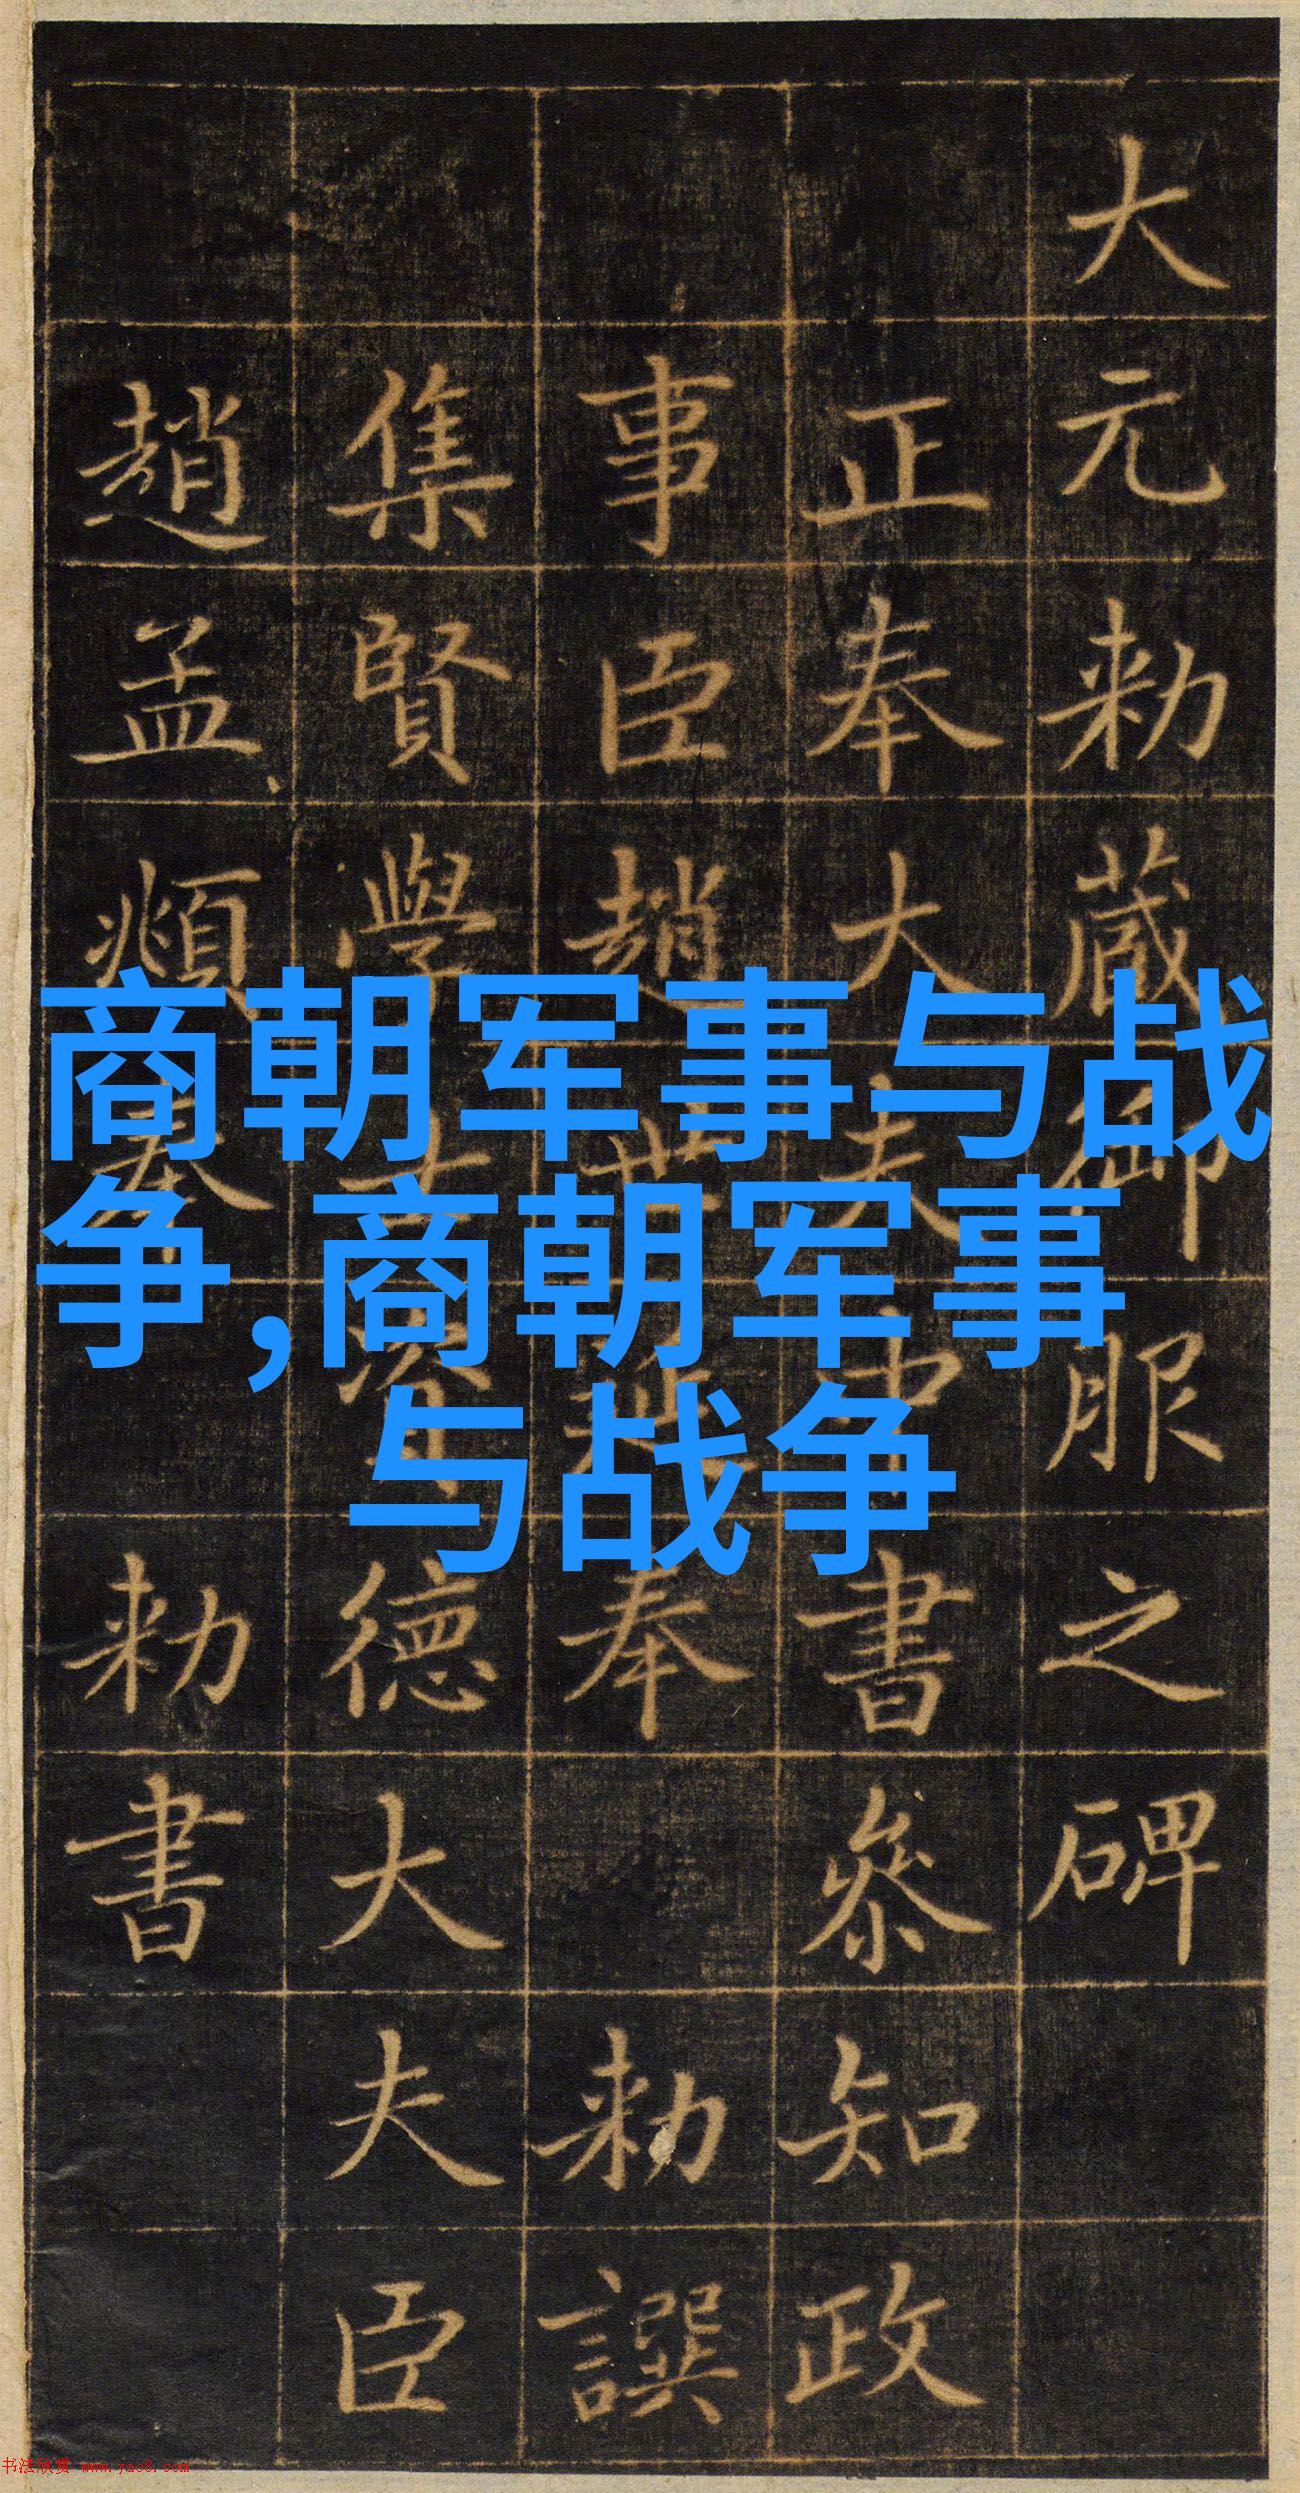 大元勅藏御服之碑
正奉大夫中書叅知政
事臣趙世延奉勅譔
集賢學士德大夫臣
趙孟頫奉勅書
商朝军事与战
争,商朝军事
与战争
书法欣赏 www.yac8.com